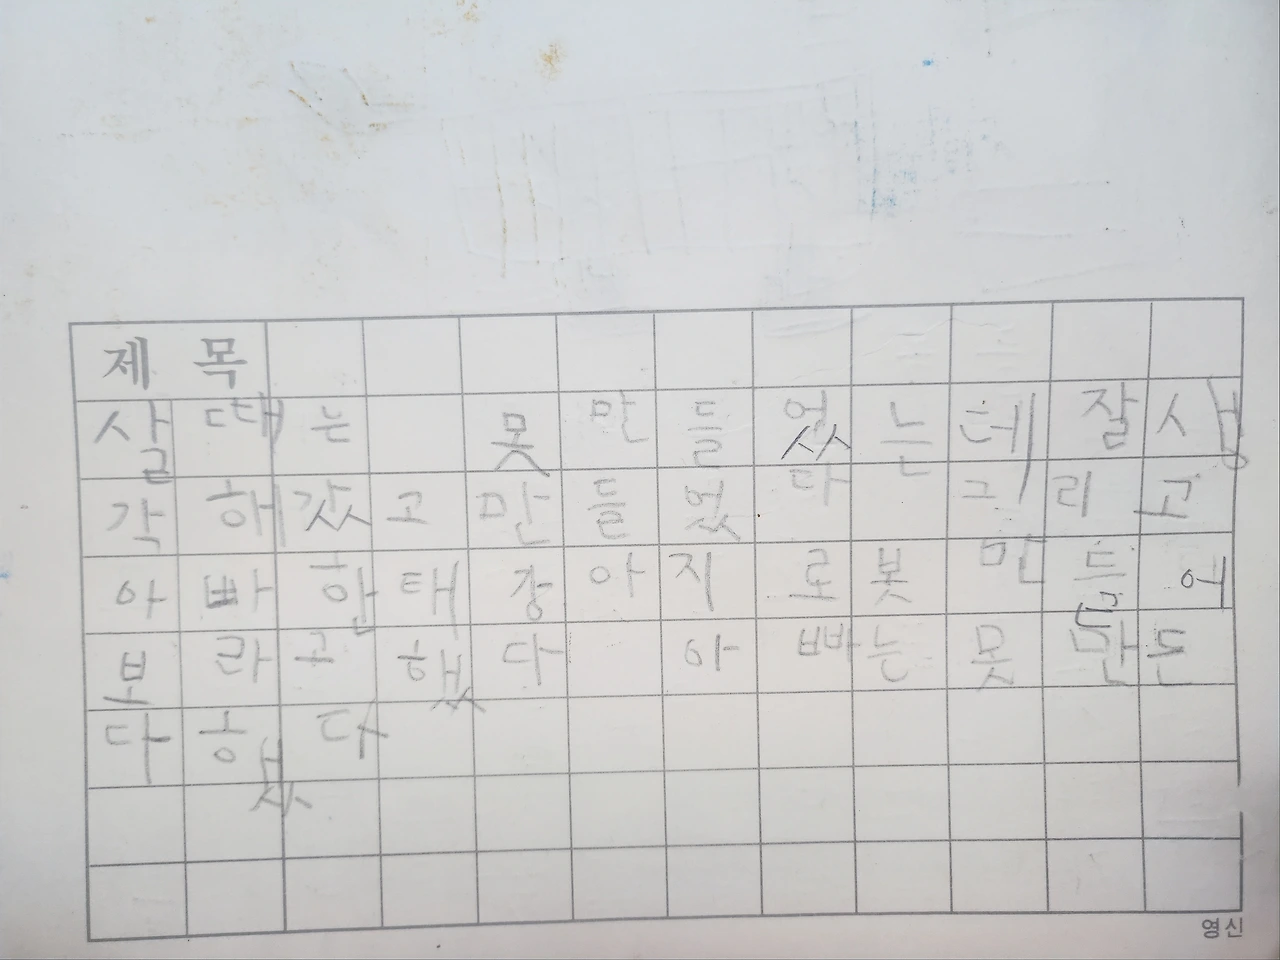 제 목
살 때는 못만들었는데 잘생
각해갔고만들었다 그리고
아빠한태강아지 로봇만들어
보라고했다 아빠는못만든
다했다
영신